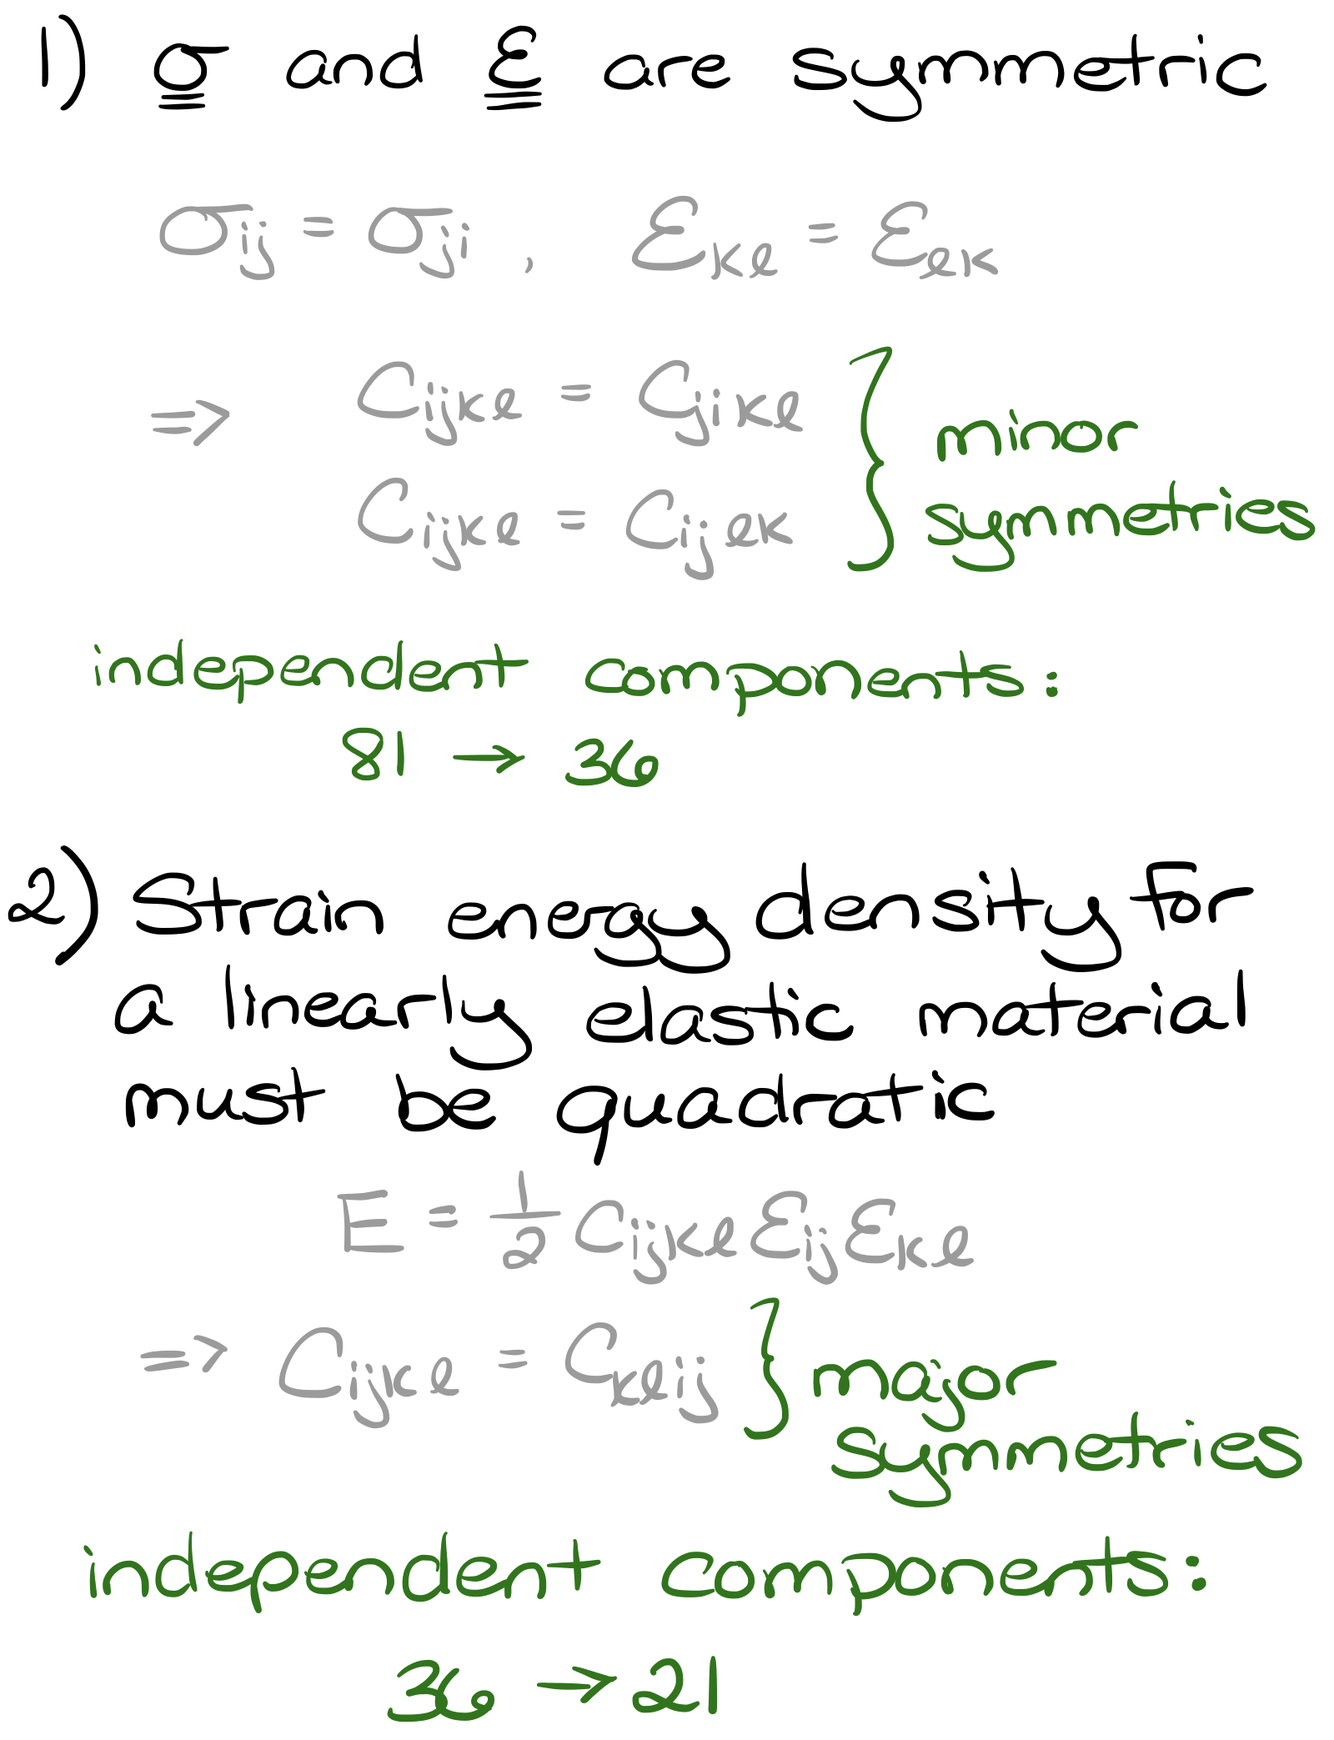 1) σ and ε are symmetric
σij = σji , εkl = εlk
=> Cijkl = Cjikl
Cijkl = Cijlk
} minor
symmetries
independent components:
81 → 36
2) Strain energy density for
a linearly elastic material
must be quadratic
E = 1/2 Cijkl εij εkl
=> Cijkl = Cklij } major
symmetries
independent components:
36 → 21